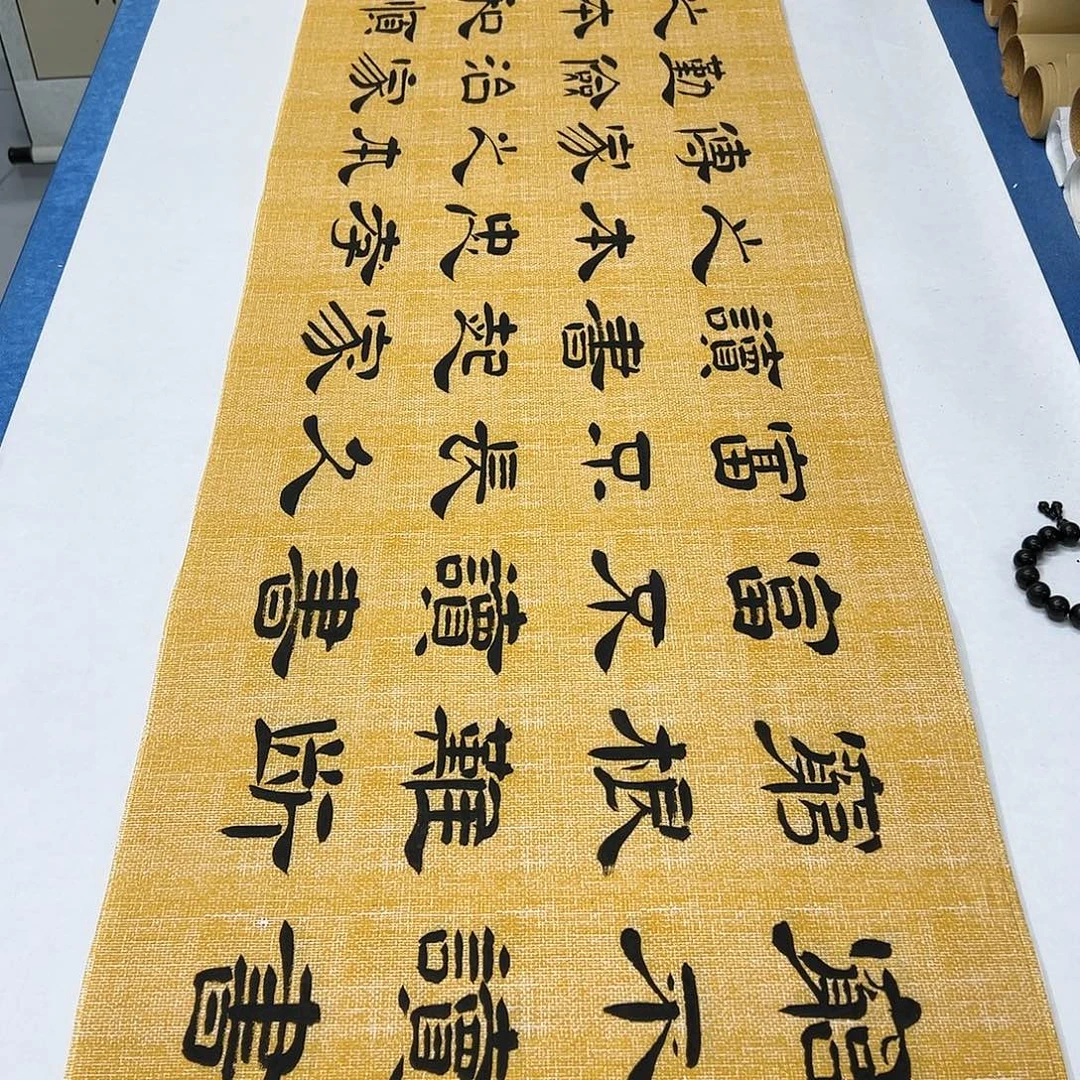 窮不讀書
窮根難斷
富不讀書
富不長久
讀書起家
之本忠孝
傳家之本
勤儉治家
之本和順